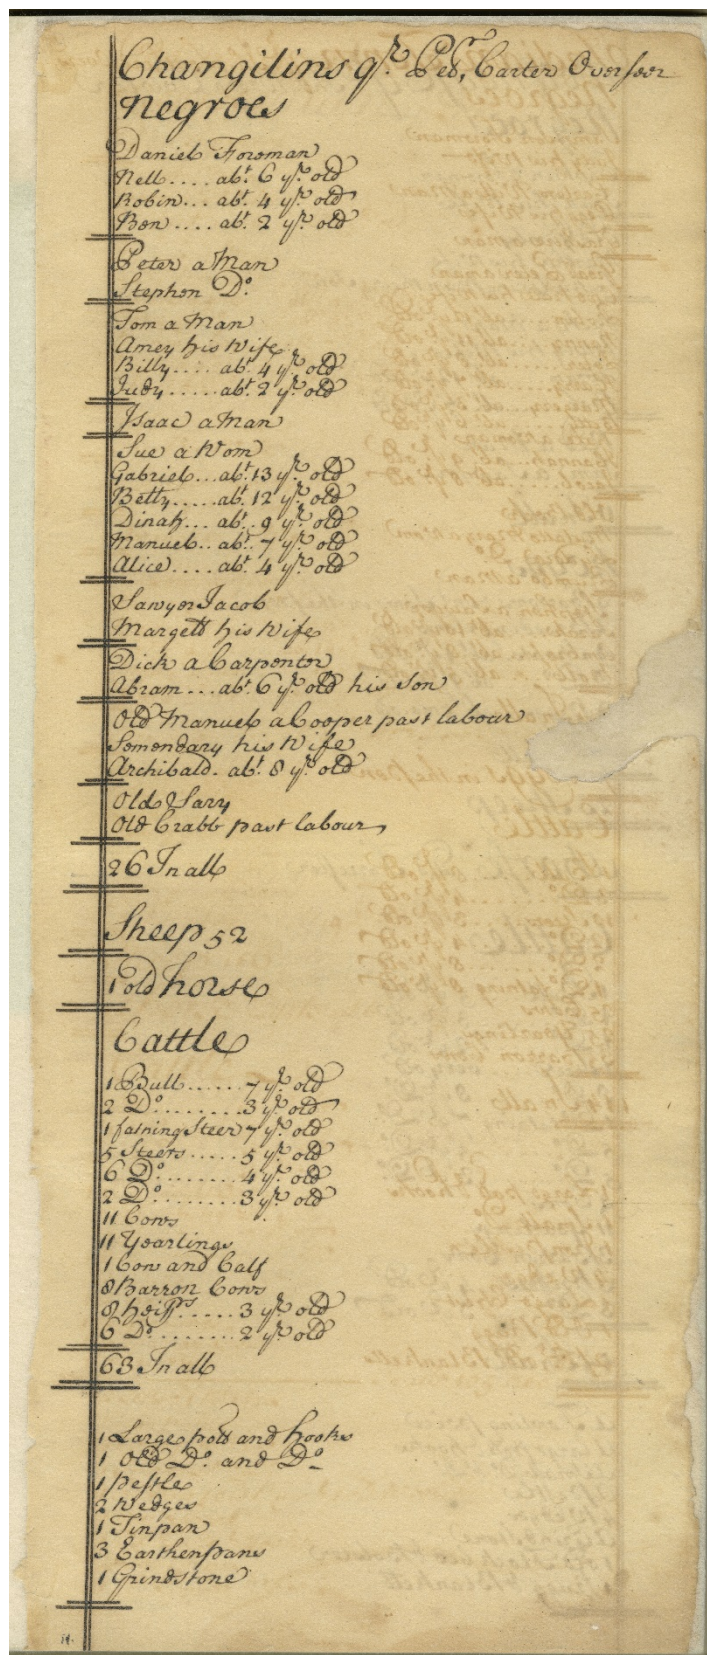 Changilins qr. Geo, Carter Overseer
Negroes
Daniel Foreman
Nell.... abt. 6 yr. old
Robin... abt. 4 yr. old
Ben.... abt. 2 yr. old
Peter a Man
Stephen Do.
Tom a Man
Amey his Wife
Billy.... abt. 4 yr. old
Judy..... abt. 2 yr. old
Isaac a Man
Sue a Wom
Gabriel... abt. 13 yr. old
Betty..... abt. 12 yr. old
Dinah... abt. 9 yr. old
Manuel.. abt. 7 yr. old
Alice.... abt. 4 yr. old
Sawyer Jacob
Margett his Wife
Dick a Carpenter
Abram... abt. 6 yr. old his Son
Old Manuel a Cooper past labour
Semendary his Wife
Archibald. abt. 8 yr. old
Old Sary
Old Crabb past labour
26 In all
Sheep 52
1 old horse
Cattle
1 Bull...... 7 yr. old
2 Do......... 3 yr. old
1 fatning Steer 7 yr. old
5 Steers..... 5 yr. old
6 Do......... 4 yr. old
2 Do......... 3 yr. old
11 Cows
11 Yearlings
1 Cow and Calf
8 Barron Cows
8 heiffs..... 3 yr. old
6 Do......... 2 yr. old
63 In all
1 Large pott and hooks
1 Old Do. and Do
1 pestle
2 Wedges
1 Tinpan
3 Earthenpans
1 Grindstone